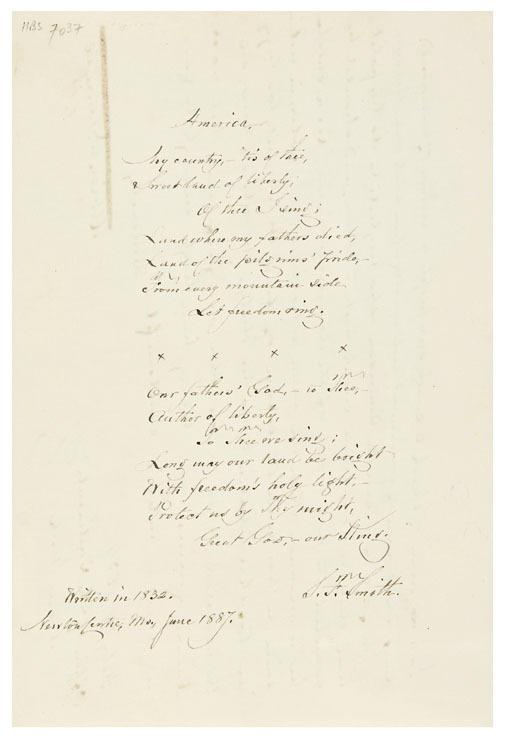 MBS 7037
America.
My country, – 'tis of thee,
Sweet land of liberty;
Of thee I sing;
Land where my fathers died,
Land of the pilgrims' pride, –
From every mountain side
Let freedom ring.
x x x x
Our fathers' God, – to Thee, –
Author of liberty,
To Thee we sing;
Long may our land be bright
With freedom's holy light, –
Protect us by Thy might,
Great God, – our King.
S. F. Smith.
Written in 1832.
Newton Centre, Ms, June 1887.